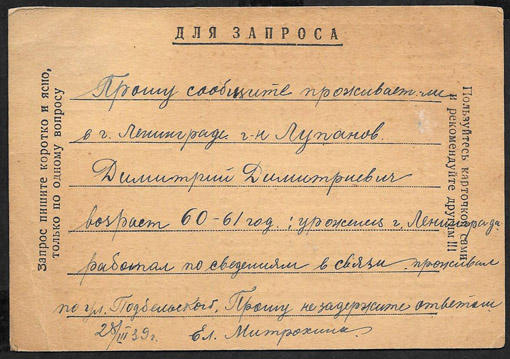 ДЛЯ ЗАПРОСА
Запрос пишите коротко и ясно,
только по одному вопросу
Прошу сообщите проживает-ли
в г. Ленинграде г-н Лупанов
Димитрий Димитриевич
возраст 60-61 год: уроженец г. Ленинграда
работал по сведениям в связи проживал
по ул. Подбельского, Прошу не задержите ответом
28/III 39 г. Ел. Митрохина
Пользуйтесь карточкой сами
и рекомендуйте другим !!!